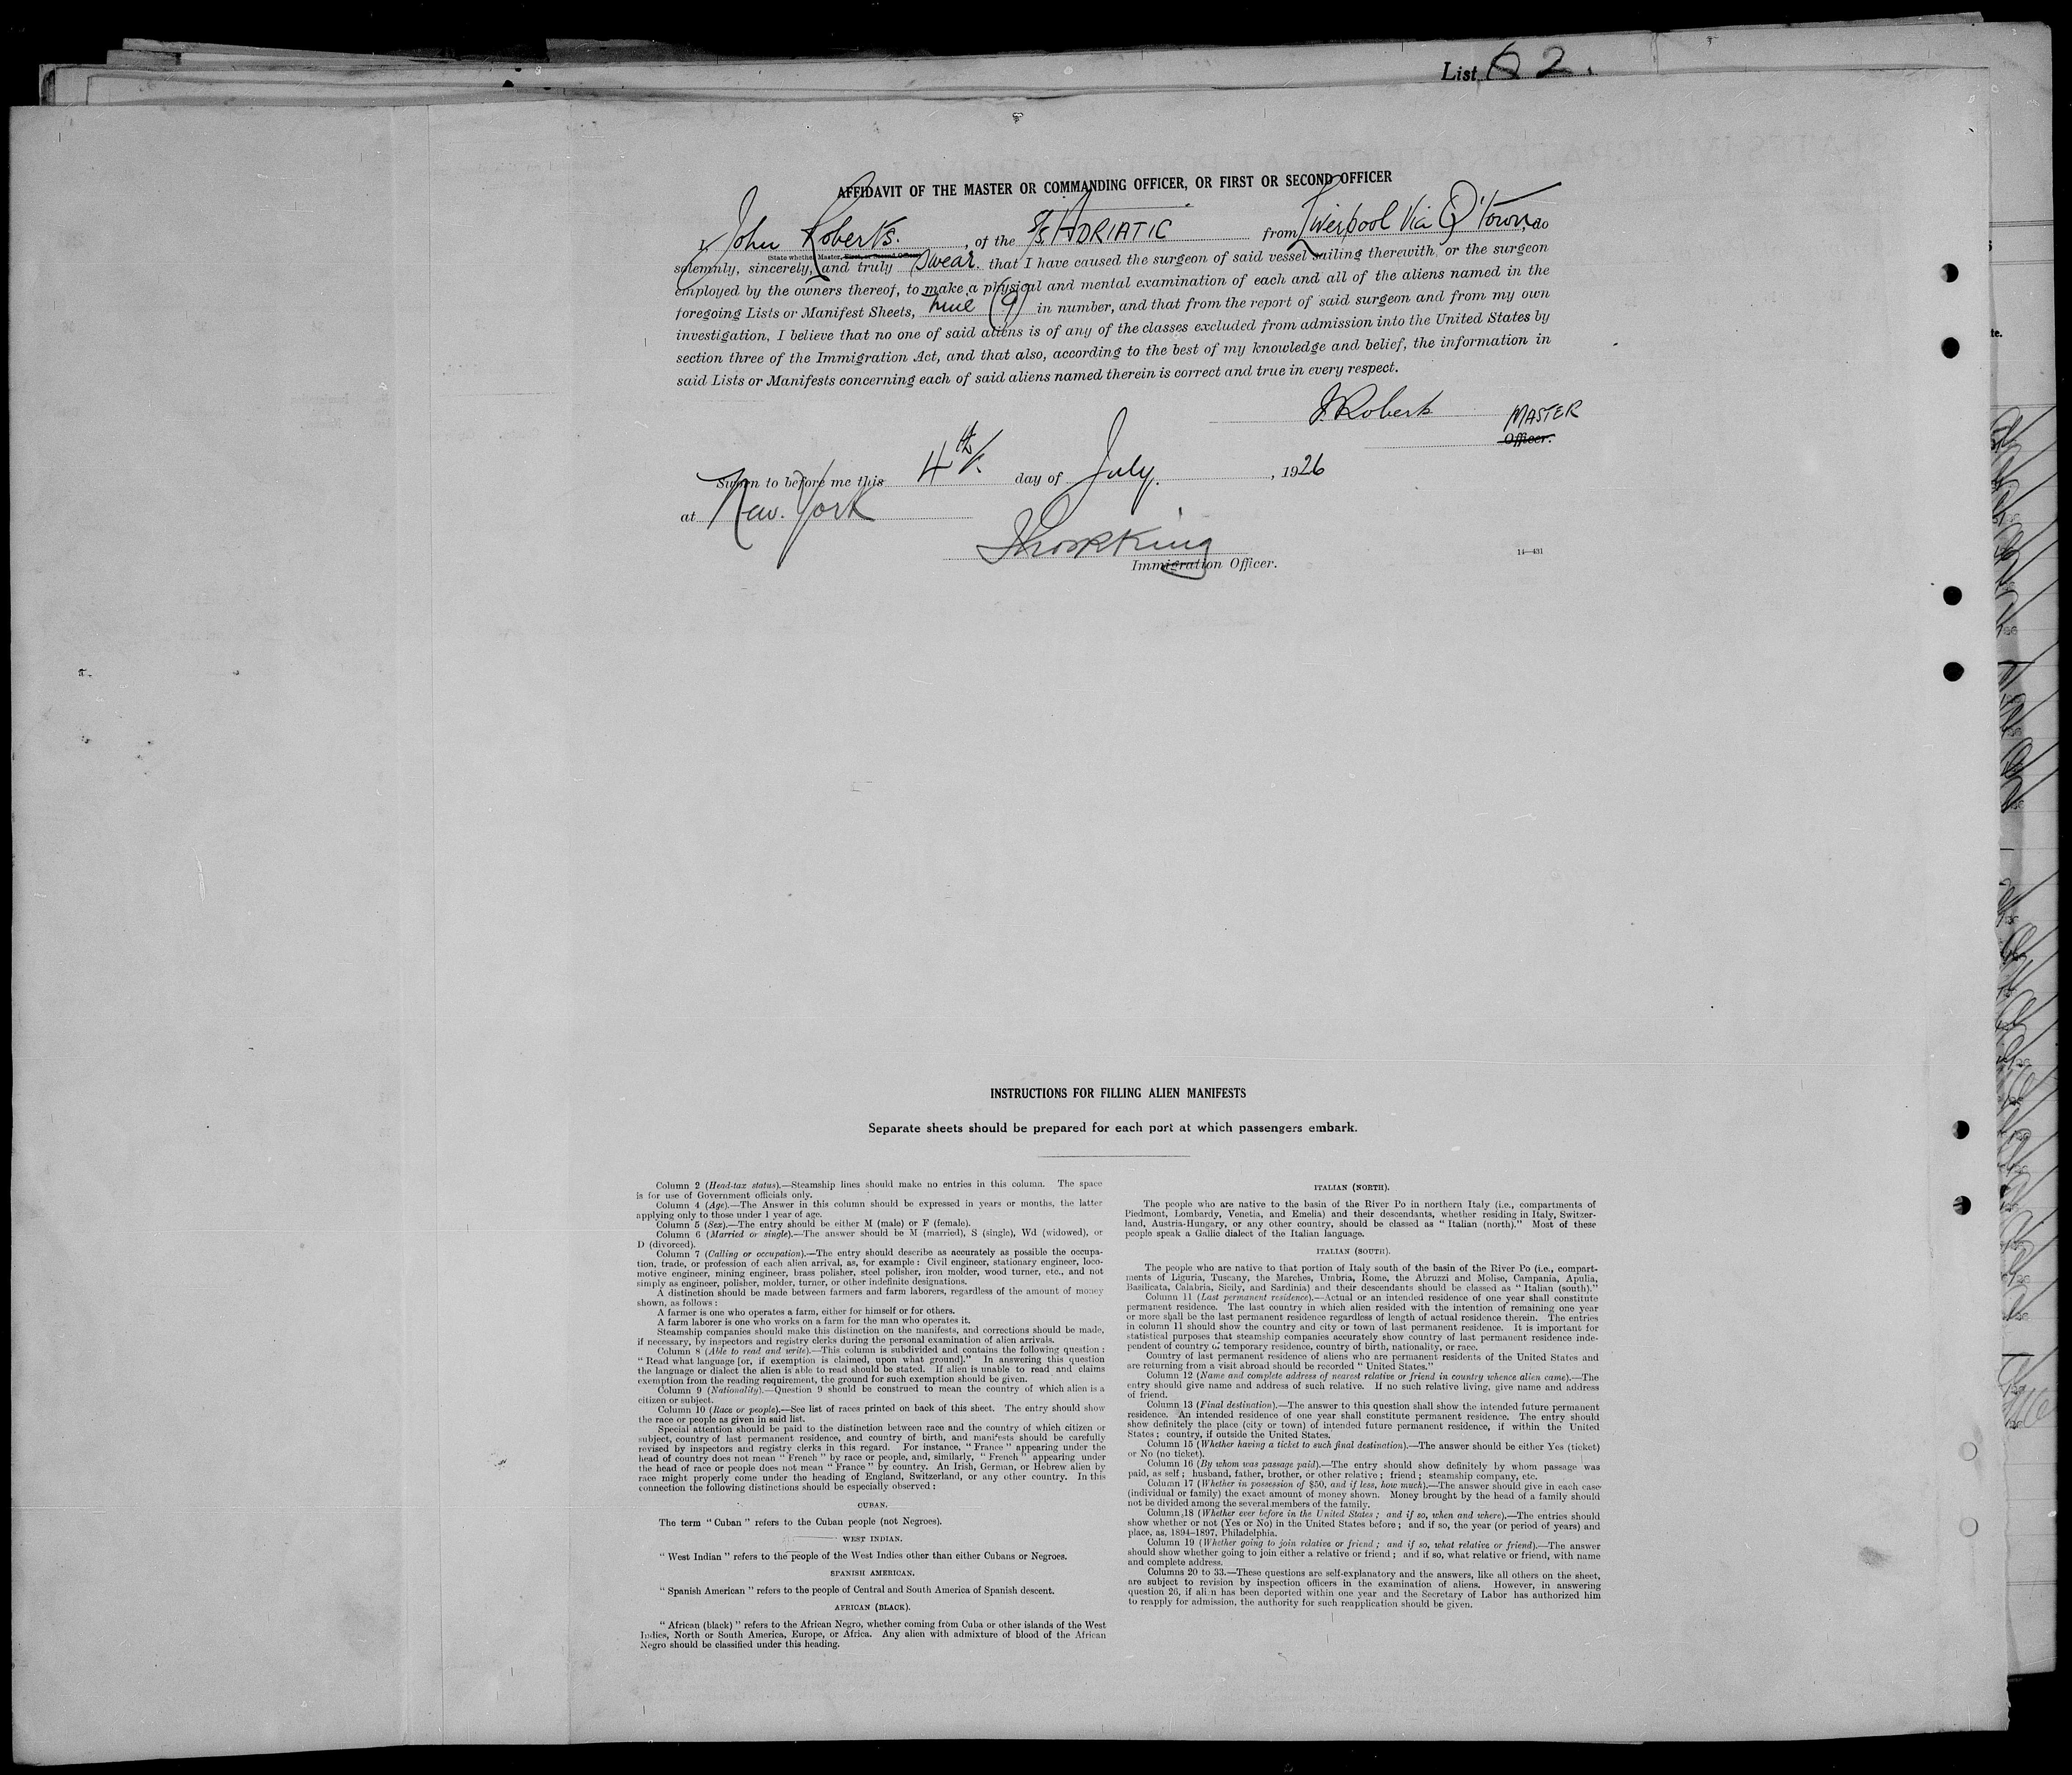 List 62.
AFFIDAVIT OF THE MASTER OR COMMANDING OFFICER, OR FIRST OR SECOND OFFICER
I, John Roberts. , of the S/S ADRIATIC from Liverpool Via Q'town, do
(State whether Master, First, or Second Officer)
solemnly, sincerely, and truly swear. that I have caused the surgeon of said vessel sailing therewith, or the surgeon
employed by the owners thereof, to make a physical and mental examination of each and all of the aliens named in the
foregoing Lists or Manifest Sheets, nine (9) in number, and that from the report of said surgeon and from my own
investigation, I believe that no one of said aliens is of any of the classes excluded from admission into the United States by
section three of the Immigration Act, and that also, according to the best of my knowledge and belief, the information in
said Lists or Manifests concerning each of said aliens named therein is correct and true in every respect.
J. Roberts MASTER
Officer.
Sworn to before me this 4th day of July. , 1926
at New York
King
Immigration Officer.
14—431
INSTRUCTIONS FOR FILLING ALIEN MANIFESTS
Separate sheets should be prepared for each port at which passengers embark.
Column 2 (Head-tax status).—Steamship lines should make no entries in this column. The space
is for use of Government officials only.
Column 4 (Age).—The Answer in this column should be expressed in years or months, the latter
applying only to those under 1 year of age.
Column 5 (Sex).—The entry should be either M (male) or F (female).
Column 6 (Married or single).—The answer should be M (married), S (single), Wd (widowed), or
D (divorced).
Column 7 (Calling or occupation).—The entry should describe as accurately as possible the occupa-
tion, trade, or profession of each alien arrival, as, for example: Civil engineer, stationary engineer, loco-
motive engineer, mining engineer, brass polisher, steel polisher, iron molder, wood turner, etc., and not
simply as engineer, polisher, molder, turner, or other indefinite designations.
A distinction should be made between farmers and farm laborers, regardless of the amount of money
shown, as follows:
A farmer is one who operates a farm, either for himself or for others.
A farm laborer is one who works on a farm for the man who operates it.
Steamship companies should make this distinction on the manifests, and corrections should be made,
if necessary, by inspectors and registry clerks during the personal examination of alien arrivals.
Column 8 (Able to read and write).—This column is subdivided and contains the following question:
"Read what language [or, if exemption is claimed, upon what ground]." In answering this question
the language or dialect the alien is able to read should be stated. If alien is unable to read and claims
exemption from the reading requirement, the ground for such exemption should be given.
Column 9 (Nationality).—Question 9 should be construed to mean the country of which alien is a
citizen or subject.
Column 10 (Race or people).—See list of races printed on back of this sheet. The entry should show
the race or people as given in said list.
Special attention should be paid to the distinction between race and the country of which citizen or
subject, country of last permanent residence, and country of birth, and manifests should be carefully
revised by inspectors and registry clerks in this regard. For instance, "France" appearing under the
head of country does not mean "French" by race or people, and, similarly, "French" appearing under
the head of race or people does not mean "France" by country. An Irish, German, or Hebrew alien by
race might properly come under the heading of England, Switzerland, or any other country. In this
connection the following distinctions should be especially observed:
CUBAN.
The term "Cuban" refers to the Cuban people (not Negroes).
WEST INDIAN.
"West Indian" refers to the people of the West Indies other than either Cubans or Negroes.
SPANISH AMERICAN.
"Spanish American" refers to the people of Central and South America of Spanish descent.
AFRICAN (BLACK).
"African (black)" refers to the African Negro, whether coming from Cuba or other islands of the West
Indies, North or South America, Europe, or Africa. Any alien with admixture of blood of the African
Negro should be classified under this heading.
ITALIAN (NORTH).
The people who are native to the basin of the River Po in northern Italy (i.e., compartments of
Piedmont, Lombardy, Venetia, and Emelia) and their descendants, whether residing in Italy, Switzer-
land, Austria-Hungary, or any other country, should be classed as "Italian (north)." Most of these
people speak a Gallic dialect of the Italian language.
ITALIAN (SOUTH).
The people who are native to that portion of Italy south of the basin of the River Po (i.e., compart-
ments of Liguria, Tuscany, the Marches, Umbria, Rome, the Abruzzi and Molise, Campania, Apulia,
Basilicata, Calabria, Sicily, and Sardinia) and their descendants should be classed as "Italian (south)."
Column 11 (Last permanent residence).—Actual or an intended residence of one year shall constitute
permanent residence. The last country in which alien resided with the intention of remaining one year
or more shall be the last permanent residence regardless of length of actual residence therein. The entries
in column 11 should show the country and city or town of last permanent residence. It is important for
statistical purposes that steamship companies accurately show country of last permanent residence inde-
pendent of country of temporary residence, country of birth, nationality, or race.
Country of last permanent residence of aliens who are permanent residents of the United States and
are returning from a visit abroad should be recorded "United States."
Column 12 (Name and complete address of nearest relative or friend in country whence alien came).—The
entry should give name and address of such relative. If no such relative living, give name and address
of friend.
Column 13 (Final destination).—The answer to this question shall show the intended future permanent
residence. An intended residence of one year shall constitute permanent residence. The entry should
show definitely the place (city or town) of intended future permanent residence, if within the United
States; country, if outside the United States.
Column 15 (Whether having a ticket to such final destination).—The answer should be either Yes (ticket)
or No (no ticket).
Column 16 (By whom was passage paid).—The entry should show definitely by whom passage was
paid, as self; husband, father, brother, or other relative; friend; steamship company, etc.
Column 17 (Whether in possession of $50, and if less, how much).—The answer should give in each case
(individual or family) the exact amount of money shown. Money brought by the head of a family should
not be divided among the several members of the family.
Column 18 (Whether ever before in the United States; and if so, when and where).—The entries should
show whether or not (Yes or No) in the United States before; and if so, the year (or period of years) and
place, as, 1894–1897, Philadelphia.
Column 19 (Whether going to join relative or friend; and if so, what relative or friend).—The answer
should show whether going to join either a relative or friend; and if so, what relative or friend, with name
and complete address.
Columns 20 to 33.—These questions are self-explanatory and the answers, like all others on the sheet,
are subject to revision by inspection officers in the examination of aliens. However, in answering
question 26, if alien has been deported within one year and the Secretary of Labor has authorized him
to reapply for admission, the authority for such reapplication should be given.